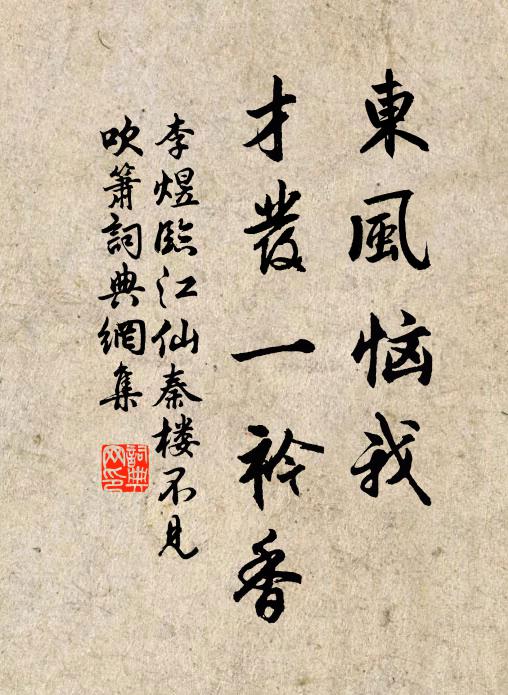 東風惱我
才發一衿香
李煜臨江仙秦楼不見
吹簫詞典網集
詞典网印